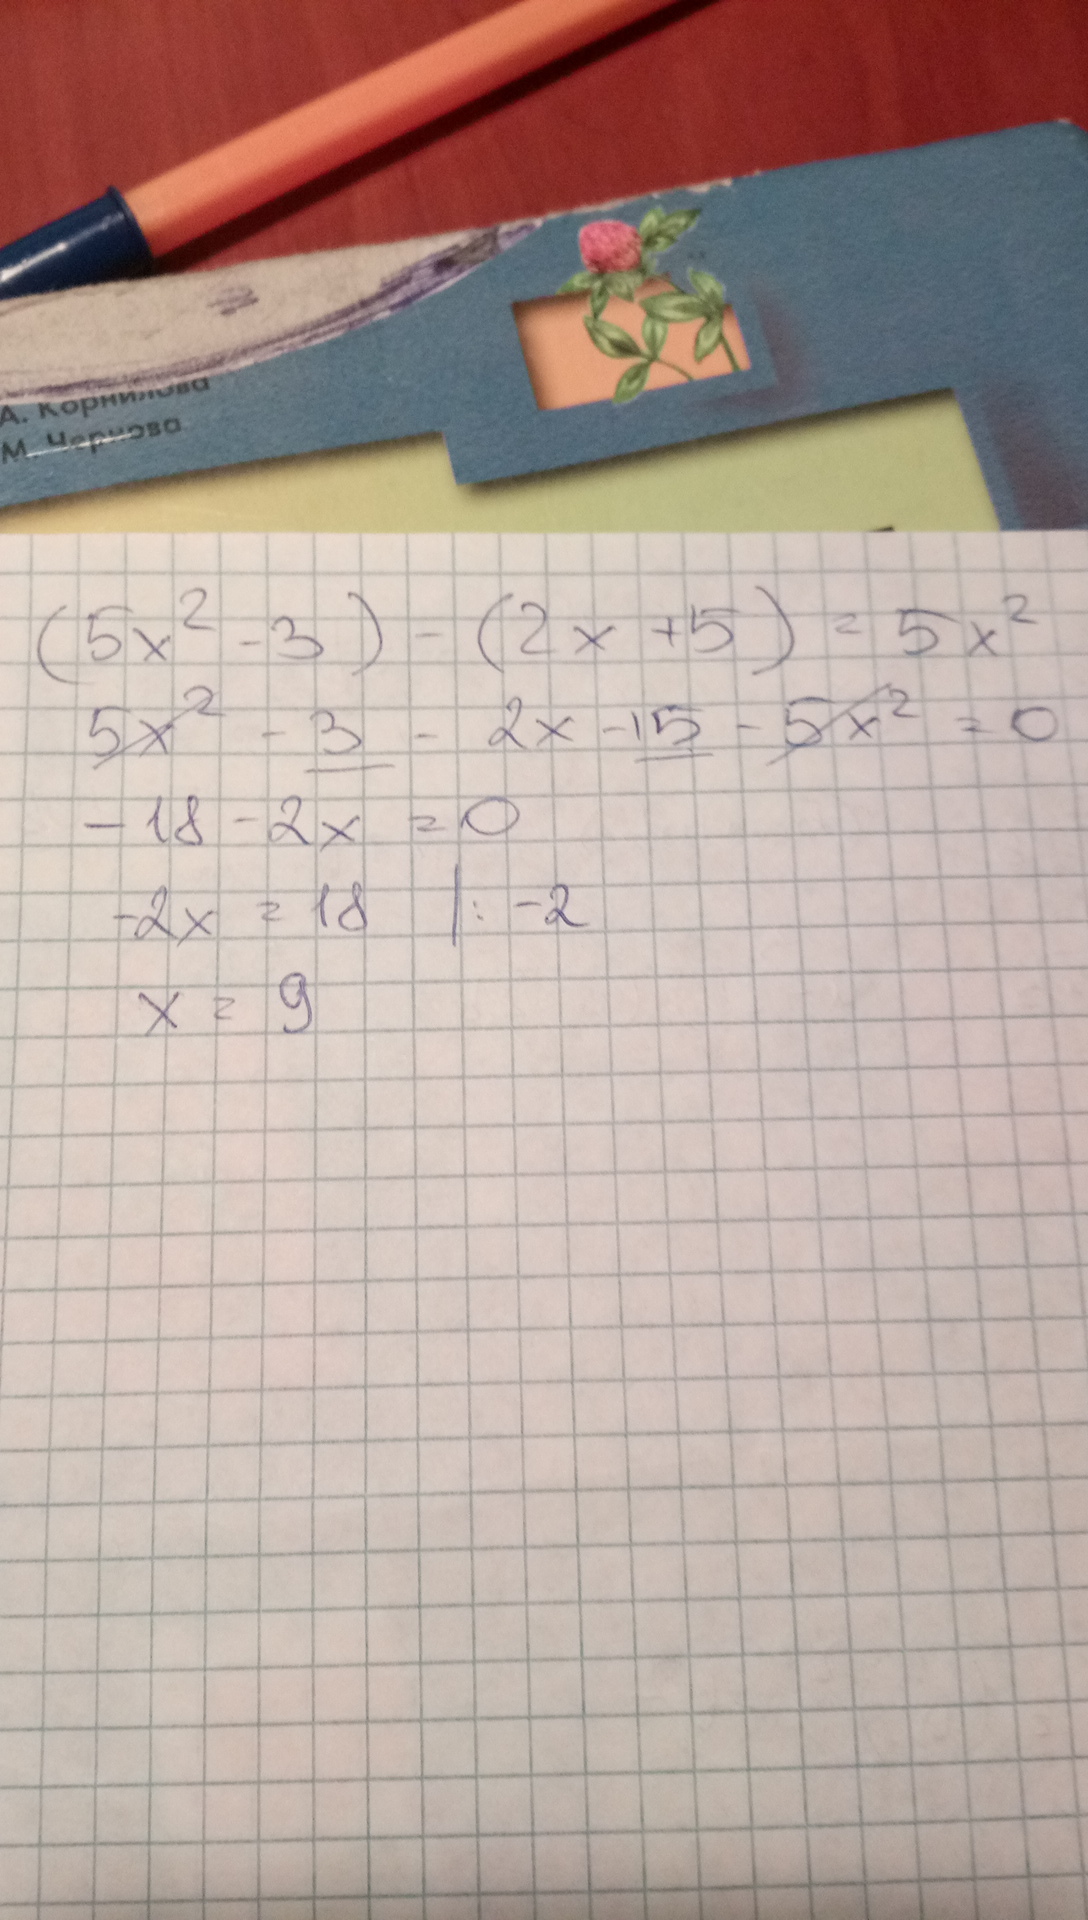 А. Корнилова
М. Чернова
(5x² - 3) - (2x + 5) = 5x²
5x² - 3 - 2x - 15 - 5x² = 0
- 18 - 2x = 0
-2x = 18 |: -2
x = 9